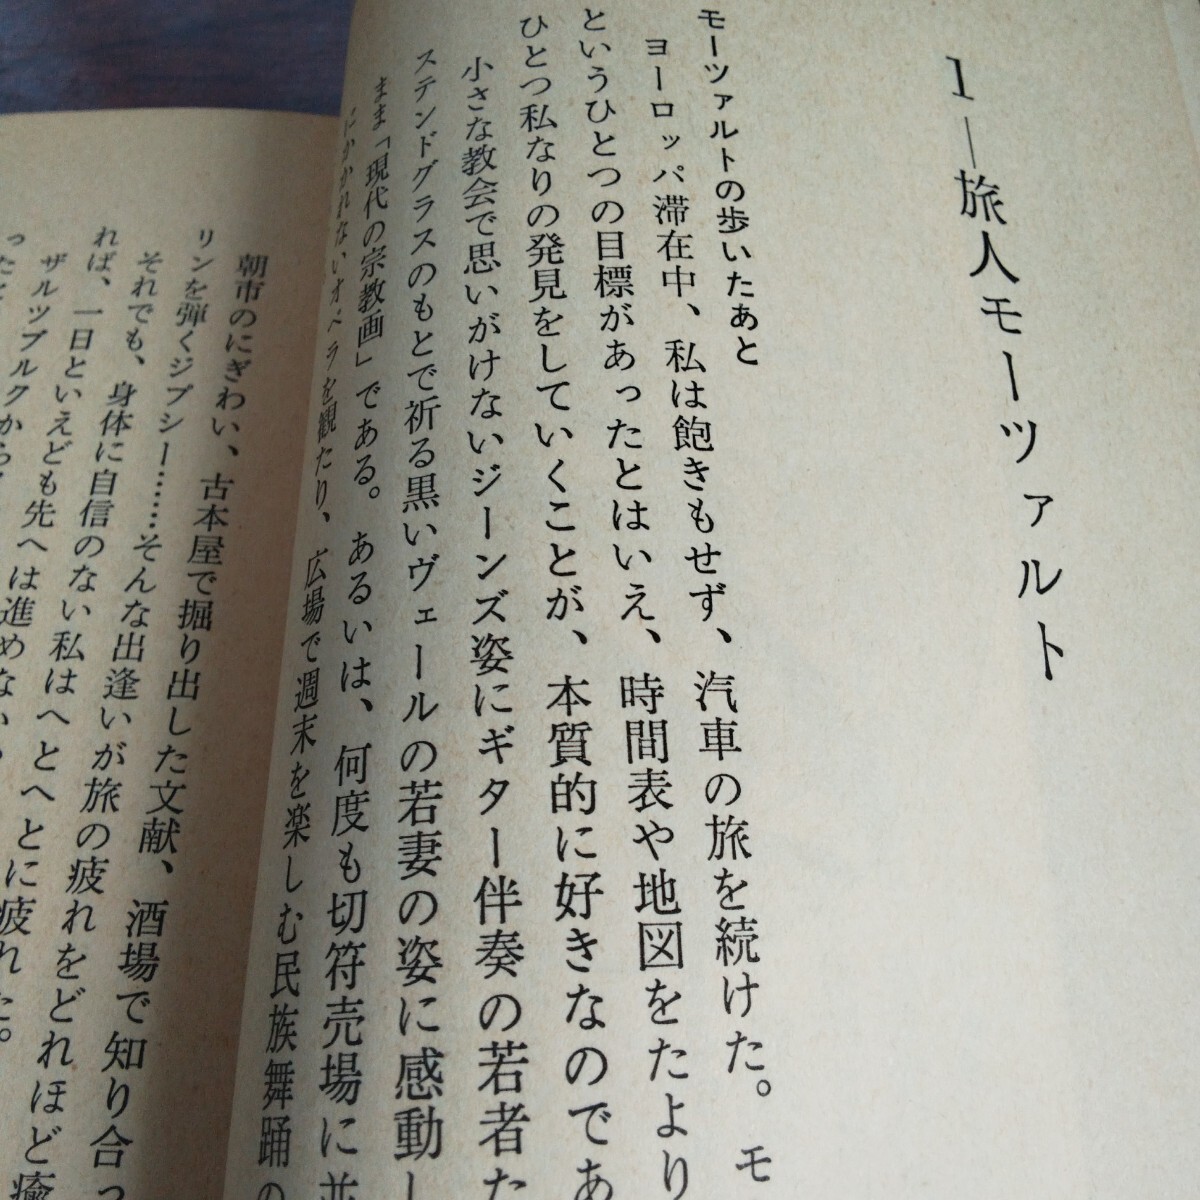 1―旅人モーツァルト
モーツァルトの歩いたあと
ヨーロッパ滞在中、私は飽きもせず、汽車の旅を続けた。モ
というひとつの目標があったとはいえ、時間表や地図をたより
ひとつ私なりの発見をしていくことが、本質的に好きなのであ
小さな教会で思いがけないジーンズ姿にギター伴奏の若者た
ステンドグラスのもとで祈る黒いヴェールの若妻の姿に感動し
まま「現代の宗教画」である。あるいは、何度も切符売場に並
にかかれないオペラを観たり、広場で週末を楽しむ民族舞踊の
朝市のにぎわい、古本屋で掘り出した文献、酒場で知り合っ
リンを弾くジプシー……そんな出逢いが旅の疲れをどれほど癒
それでも、身体に自信のない私はへとへとに疲れた。
れば、一日といえども先へは進めない
ザルツブルクから
った